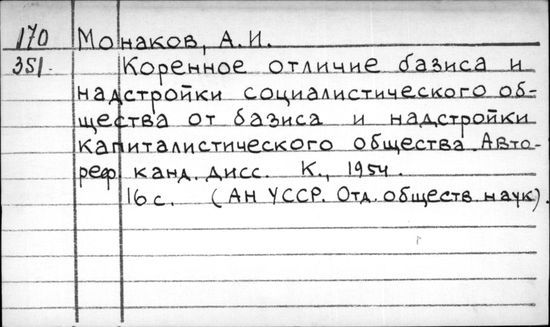 170 Монаков, А.И.
351. Коренное отличие базиса и
надстройки социалистического об-
щества от базиса и надстройки
капиталистического общества. Авто-
реф канд. дисс. К., 1954.
16 с. (АН УССР. Отд. обществ. наук).